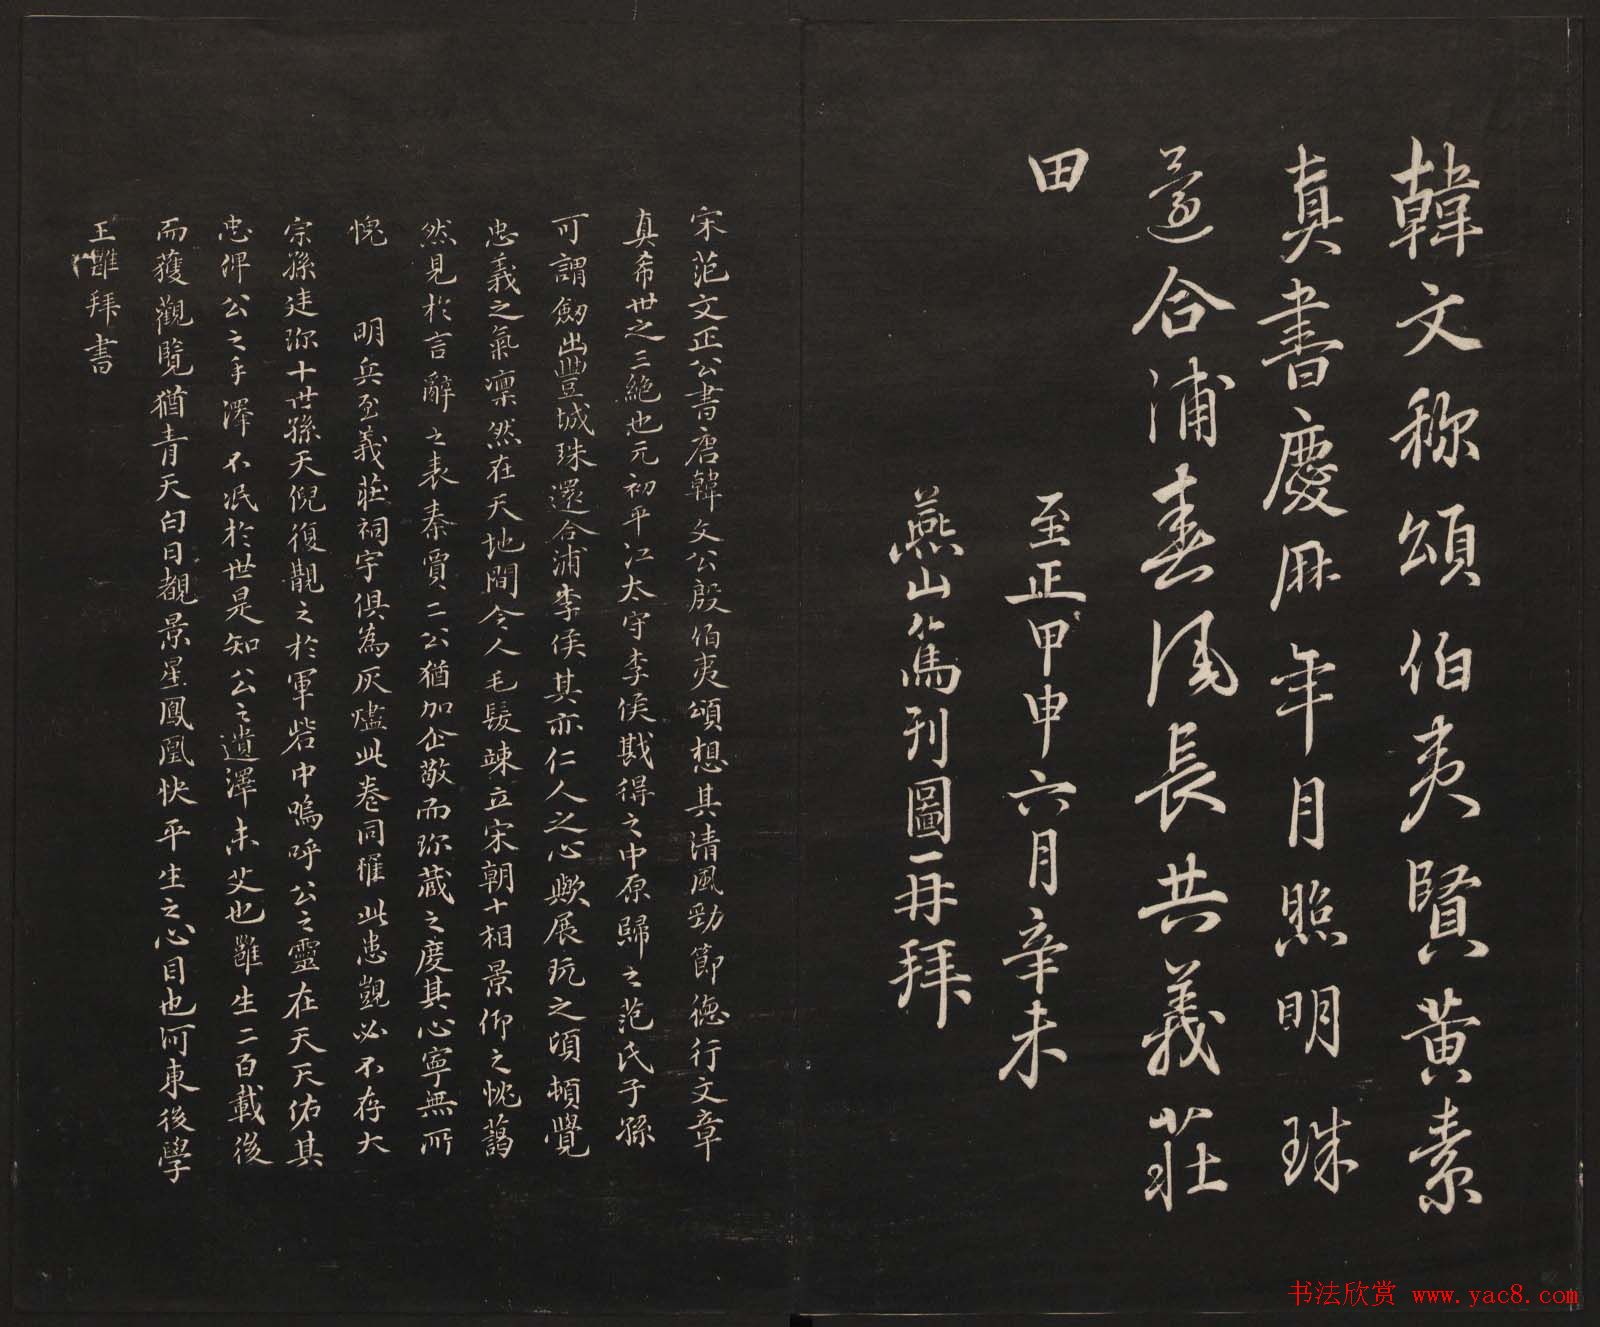 韓文称頌伯夷賢黄素
真書慶厤年月照明珠
還合浦春風長共義莊
田
至正甲申六月辛未
燕山篤列圖再拜
宋范文正公書唐韓文公殷伯夷頌想其清風勁節德行文章
真希世之三絶也元初平江太守李侯戡得之中原歸之范氏子孫
可謂劒出豐城珠還合浦李侯其亦仁人之心歟展玩之頃頓覺
忠義之氣凛然在天地間令人毛髮竦立宋朝十相景仰之愧藹
然見於言辭之表秦賈二公猶加企敬而珎蔵之度其心寧無所
愧 明兵至義莊祠宇俱為灰燼此卷同罹此患覬必不存大
宗孫廷珎十世孫天倪復覩之於軍砦中嗚呼公之靈在天天佑其
忠俾公之手澤不泯於世是知公之遺澤未艾也雖生二百載後
而獲觀覽猶青天白日覩景星鳳凰快平生之心目也河東後學
王 拜書
书法欣赏 www.yac8.com